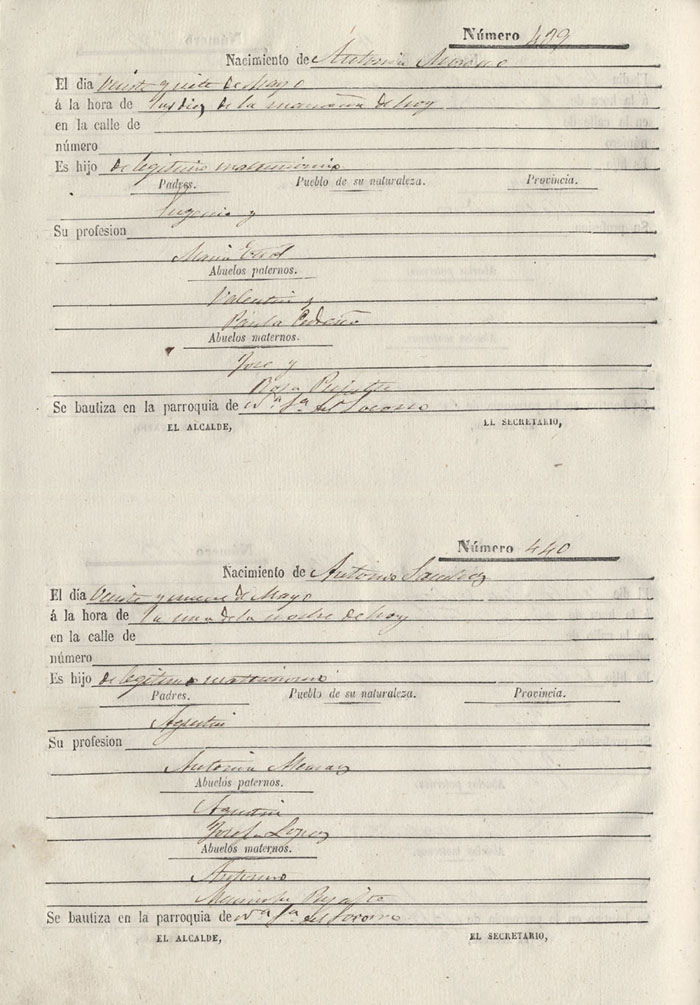 Número 439
Nacimiento de Antonia Moreno
El dia Veinte y siete de Mayo
á la hora de las diez de la mañana de hoy
en la calle de
número
Es hijo de legitimo matrimonio
Padres. Pueblo de su naturaleza. Provincia.
Eugenio y
Su profesion
Maria
Abuelos paternos.
Valentin y
Paula
Abuelos maternos.
Jose y
Rosa
Se bautiza en la parroquia de Nª Sª del Socorro
EL ALCALDE, EL SECRETARIO,
Número 440
Nacimiento de Antonio Sanchez
El dia Veinte y nueve de Mayo
á la hora de la una de la noche de hoy
en la calle de
número
Es hijo de legitimo matrimonio
Padres. Pueblo de su naturaleza. Provincia.
Agustin
Su profesion
Antonia
Abuelos paternos.
Agustin
Josefa Lopez
Abuelos maternos.
Antonio
Se bautiza en la parroquia de Nª Sª del Socorro
EL ALCALDE, EL SECRETARIO,